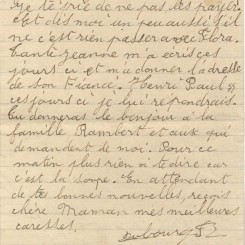 Je te prie de ne pas les payer.
Et dis moi un peu aussi s'il
ne c'est rien passer avec Flora.
tante Jeanne m'a écris ces
jours ci et m'a donner l'adresse
de son Fiancé. Henri Paul
ces jours ci je lui répondrais.
tu donneras le bonjour à la
famille Rambert et aux qui
demandent de moi. Pour ce
matin plus rien a te dire car
c'est la soupe. En attendant
de tes bonnes nouvelles, reçois
chère Maman mes meilleures
caresses.
Dubourg